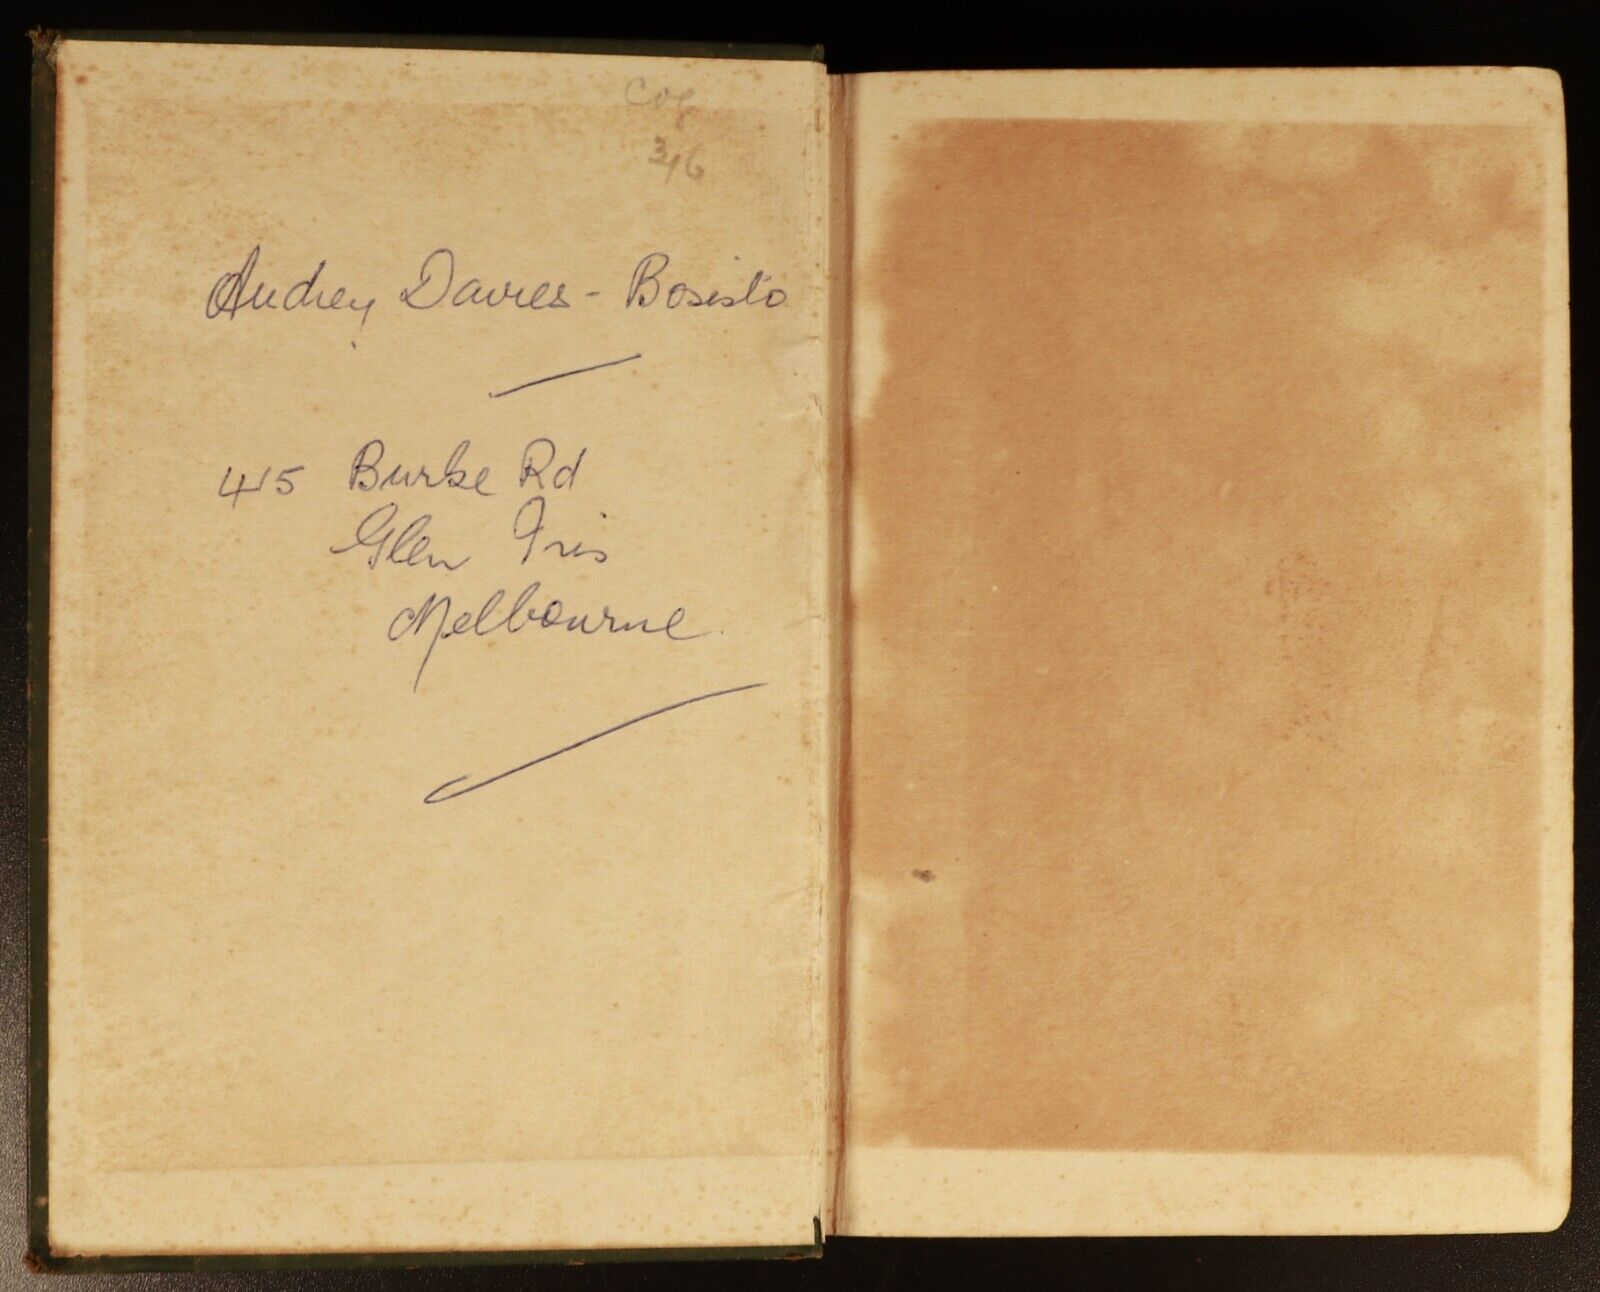 3/6
Audrey Davies - Bosisto
415 Burke Rd
Glen Iris
Melbourne